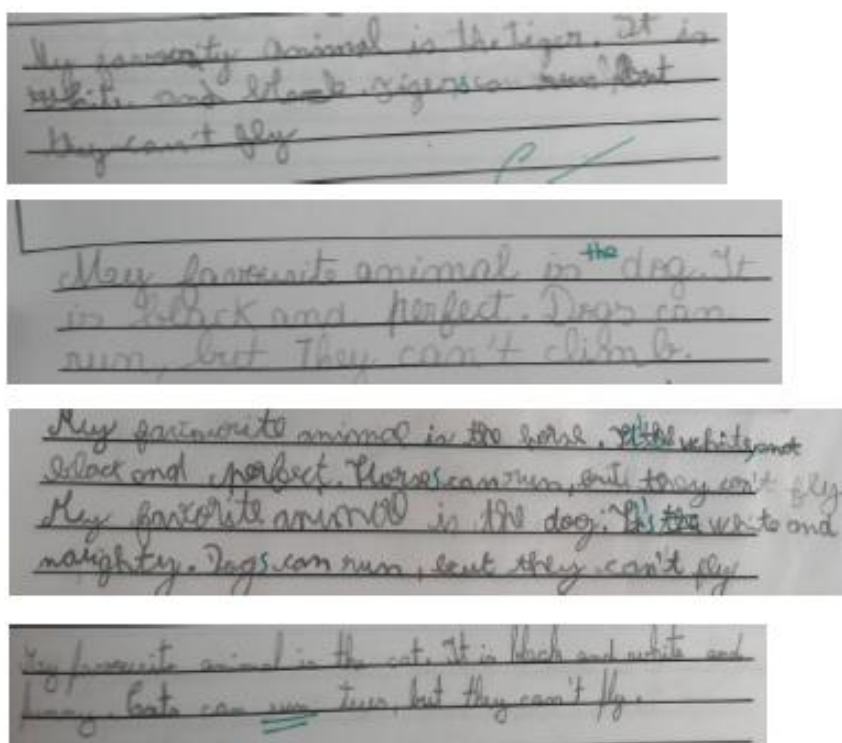 My favourity animal is the tiger. It is
white and black. Tigers can run, but
they can't fly
My favourite animal is the dog. It
is black and perfect. Dogs can
run, but They can't climb.
My favimorite animal is the horse. It's the white, not
black and perfect. Horses can run, but they can't fly
My favorite animal is the dog. It's the white and
naughty. Dogs can run, but they can't fly
My favourite animal is the cat. It is black and white and
funny. Cats can run, but they can't fly.